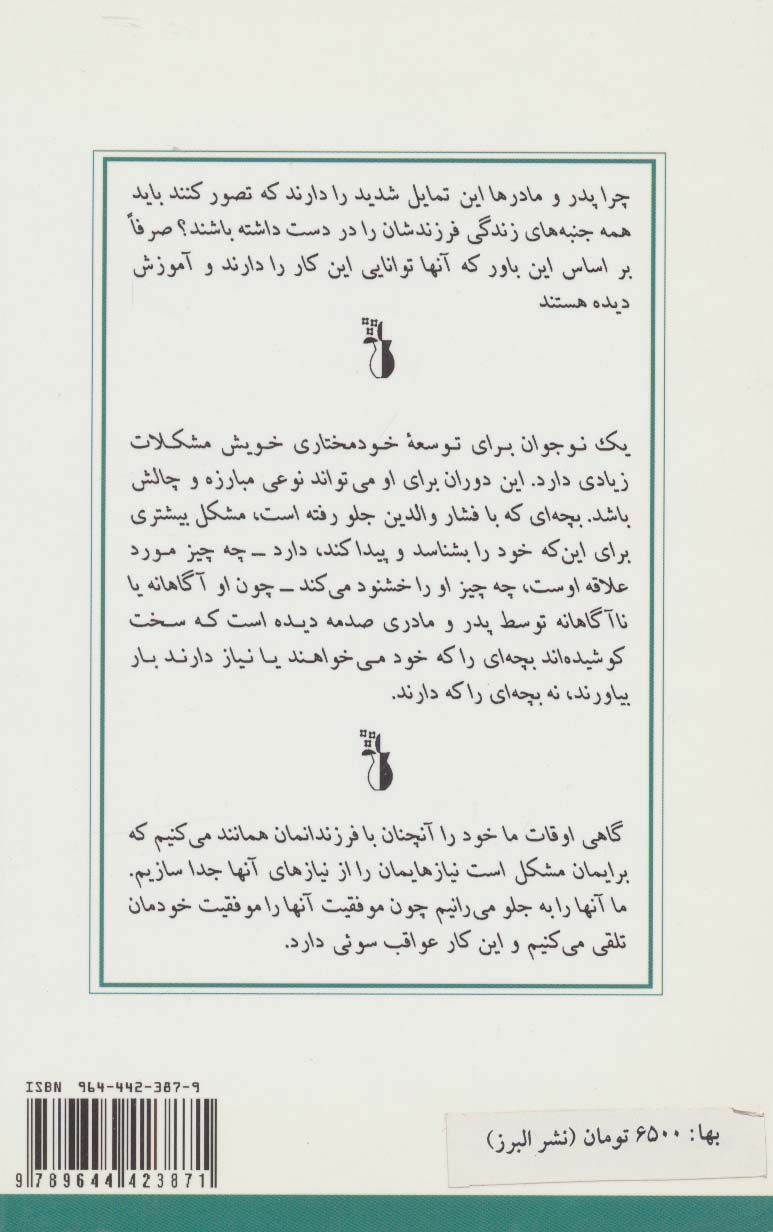 چرا پدر و مادرها این تمایل شدید را دارند که تصور کنند باید
همه جنبه‌های زندگی فرزندشان را در دست داشته باشند؟ صرفاً
بر اساس این باور که آنها توانایی این کار را دارند و آموزش
دیده هستند
یک نوجوان برای توسعهٔ خودمختاری خویش مشکلات
زیادی دارد. این دوران برای او می‌تواند نوعی مبارزه و چالش
باشد. بچه‌ای که با فشار والدین جلو رفته است، مشکل بیشتری
برای این‌که خود را بشناسد و پیدا کند، دارد ــ چه چیز مورد
علاقه اوست، چه چیز او را خشنود می‌کند ــ چون او آگاهانه یا
ناآگاهانه توسط پدر و مادری صدمه دیده است که سخت
کوشیده‌اند بچه‌ای را که خود می‌خواهند یا نیاز دارند بار
بیاورند، نه بچه‌ای را که دارند.
گاهی اوقات ما خود را آنچنان با فرزندانمان همانند می‌کنیم که
برایمان مشکل است نیازهایمان را از نیازهای آنها جدا سازیم.
ما آنها را به جلو می‌رانیم چون موفقیت آنها را موفقیت خودمان
تلقی می‌کنیم و این کار عواقب سوئی دارد.
ISBN 964-442-387-9
9 789644 423871
بها: ۶۵۰۰ تومان (نشر البرز)